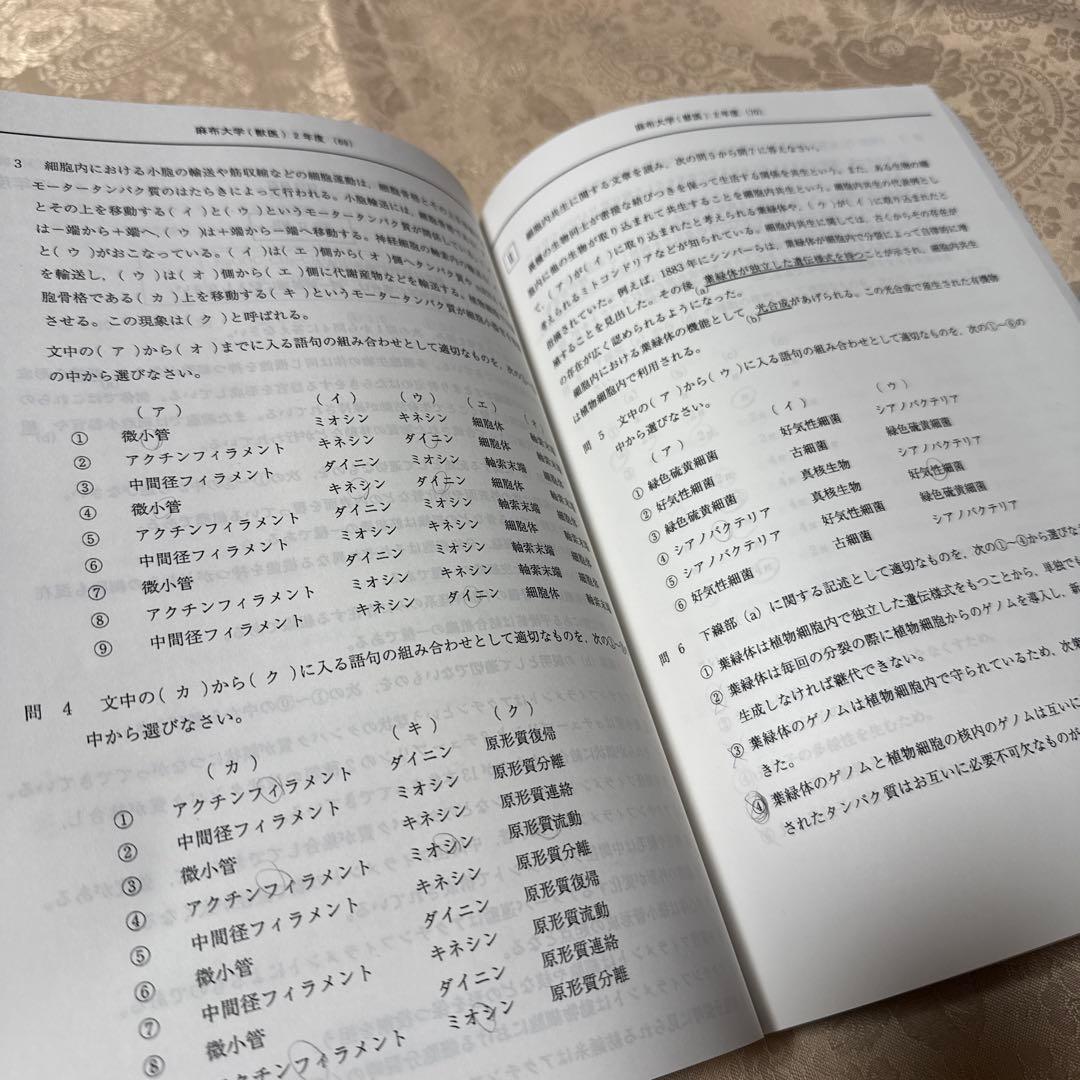 麻布大学(獣医) 2年度 (69)
3 細胞内における小胞の輸送や筋収縮などの細胞運動は、細胞骨格とその上
モータータンパク質のはたらきによって行われる。小胞輸送には、細胞骨格である(ア)
とその上を移動する(イ)と(ウ)というモータータンパク質が関係している。
は－端から＋端へ、(ウ)は＋端から－端へ移動する。神経細胞の軸索内の輸送
と(ウ)がおこなっている。(イ)は(エ)側から(オ)側へタンパク質や
を輸送し、(ウ)は(オ)側から(エ)側に代謝産物などを輸送する。植物細胞
胞骨格である(カ)上を移動する(キ)というモータータンパク質が細胞小器官
させる。この現象は(ク)と呼ばれる。
文中の(ア)から(オ)までに入る語句の組み合わせとして適切なものを、次の
の中から選びなさい。
(ア) (イ) (ウ) (エ) (オ
① 微小管 ミオシン キネシン 細胞体
② アクチンフィラメント キネシン ダイニン 細胞体 軸索末端
③ 中間径フィラメント ダイニン ミオシン 軸索末端
④ 微小管 キネシン ダイニン 細胞体 軸索末端
⑤ アクチンフィラメント ダイニン ミオシン 軸索末端 細胞体
⑥ 中間径フィラメント ミオシン キネシン 細胞体 軸索末端
⑦ 微小管 ダイニン ミオシン 軸索末端 細胞体
⑧ アクチンフィラメント ミオシン キネシン 軸索末端 細胞体
⑨ 中間径フィラメント キネシン ダイニン 細胞体 軸索末端
問 4 文中の(カ)から(ク)に入る語句の組み合わせとして適切なものを、次の①～⑨
中から選びなさい。
(カ) (キ) (ク)
① アクチンフィラメント ダイニン 原形質復帰
② 中間径フィラメント ミオシン 原形質分離
③ 微小管 キネシン 原形質連絡
④ アクチンフィラメント ミオシン 原形質流動
⑤ 中間径フィラメント キネシン 原形質分離
⑥ 微小管 ダイニン 原形質復帰
⑦ 中間径フィラメント キネシン 原形質流動
⑧ 微小管 ダイニン 原形質連絡
アクチンフィラメント ミオシン 原形質分離
麻布大学(獣医) 2年度 (70)
細胞内共生に関する文章を読み、次の問5から問7に答えなさい。
異種の生物同士が密接な結びつきを保って生活する関係を共生という。また、ある生物の細
胞内に他の生物が取り込まれて共生することを細胞内共生という。細胞内共生の代表例とし
て、(ア)が(イ)に取り込まれたと考えられる葉緑体や、(ウ)が(イ)に取り込まれたと
考えられるミトコンドリアなどが知られている。細胞内共生に関しては、古くからその存在が
指摘されていた。例えば、1883年にシンパーらは、葉緑体が細胞内で分裂によって自律的に増
殖することを見出した。その後、葉緑体が独立した遺伝様式を持つことが示され、細胞内共生
(a)
の存在が広く認められるようになった。
細胞内における葉緑体の機能として、光合成があげられる。この光合成で産生された有機物
(b)
は植物細胞内で利用される。
問 5 文中の(ア)から(ウ)に入る語句の組み合わせとして適切なものを、次の①～⑥の
中から選びなさい。
(ア) (イ) (ウ)
① 緑色硫黄細菌 好気性細菌 シアノバクテリア
② 好気性細菌 古細菌 緑色硫黄細菌
③ 緑色硫黄細菌 真核生物 シアノバクテリア
④ シアノバクテリア 真核生物 好気性細菌
⑤ シアノバクテリア 好気性細菌 緑色硫黄細菌
⑥ 好気性細菌 古細菌 シアノバクテリア
問 6 下線部(a)に関する記述として適切なものを、次の①～④から選びな
① 葉緑体は植物細胞内で独立した遺伝様式をもつことから、単独でも
② 葉緑体は毎回の分裂の際に植物細胞からのゲノムを導入し、新
生成しなければ継代できない。
③ 葉緑体のゲノムは植物細胞内で守られているため、次第
きた。
④ 葉緑体のゲノムと植物細胞の核内のゲノムは互いに
されたタンパク質はお互いに必要不可欠なものが